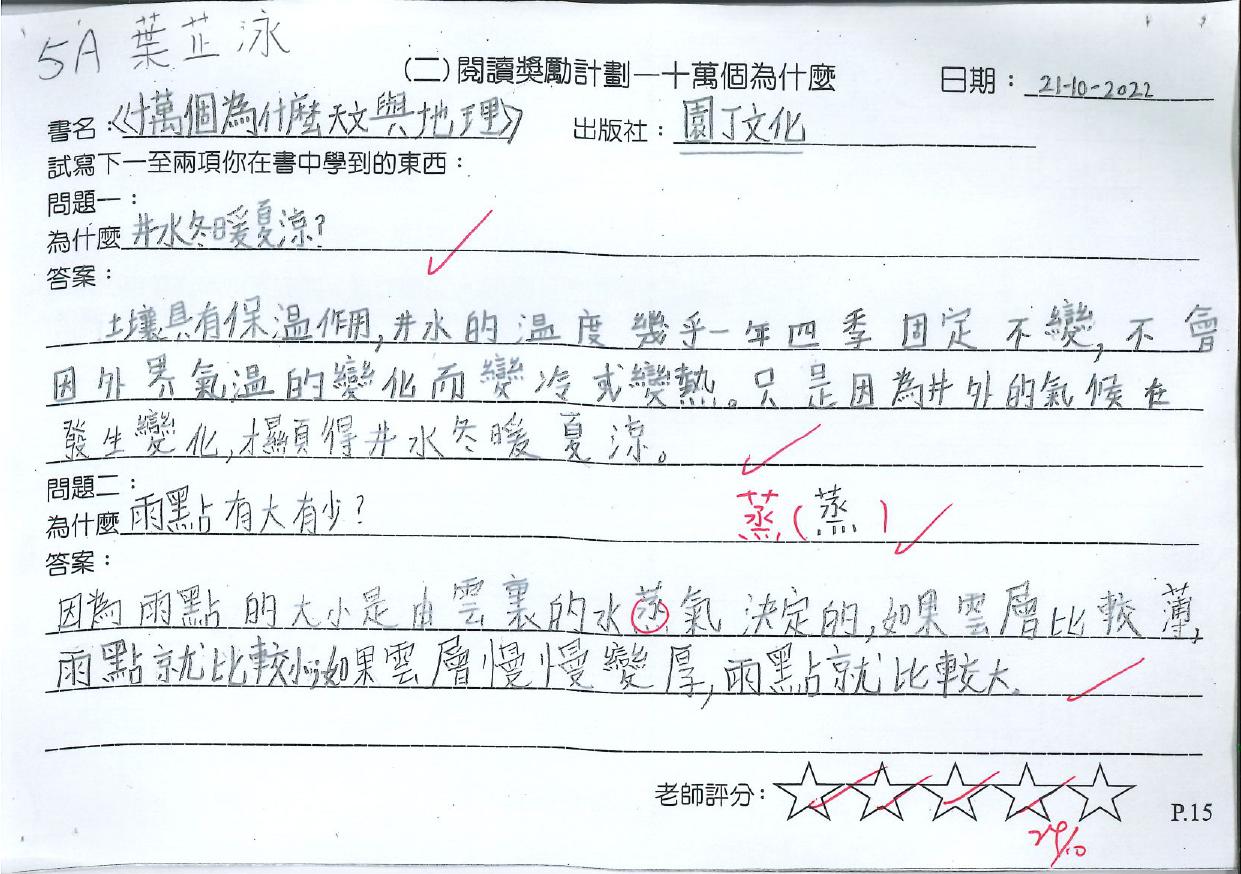 5A 葉芷泳
(二)閱讀獎勵計劃—十萬個為什麼
日期：21-10-2022
書名：《十萬個為什麼天文與地理》 出版社：園丁文化
試寫下一至兩項你在書中學到的東西：
問題一：
為什麼井水冬暖夏涼?
答案：
土壤具有保溫作用,井水的溫度幾乎一年四季固定不變,不會
因外界氣溫的變化而變冷或變熱。只是因為井外的氣候在
發生變化,才顯得井水冬暖夏涼。
問題二：
為什麼雨點有大有少?
蒸(蒸)
答案：
因為雨點的大小是由雲裏的水蒸氣決定的,如果雲層比較薄,
雨點就比較小;如果雲層慢慢變厚,雨點就比較大。
老師評分：
24/10
P.15